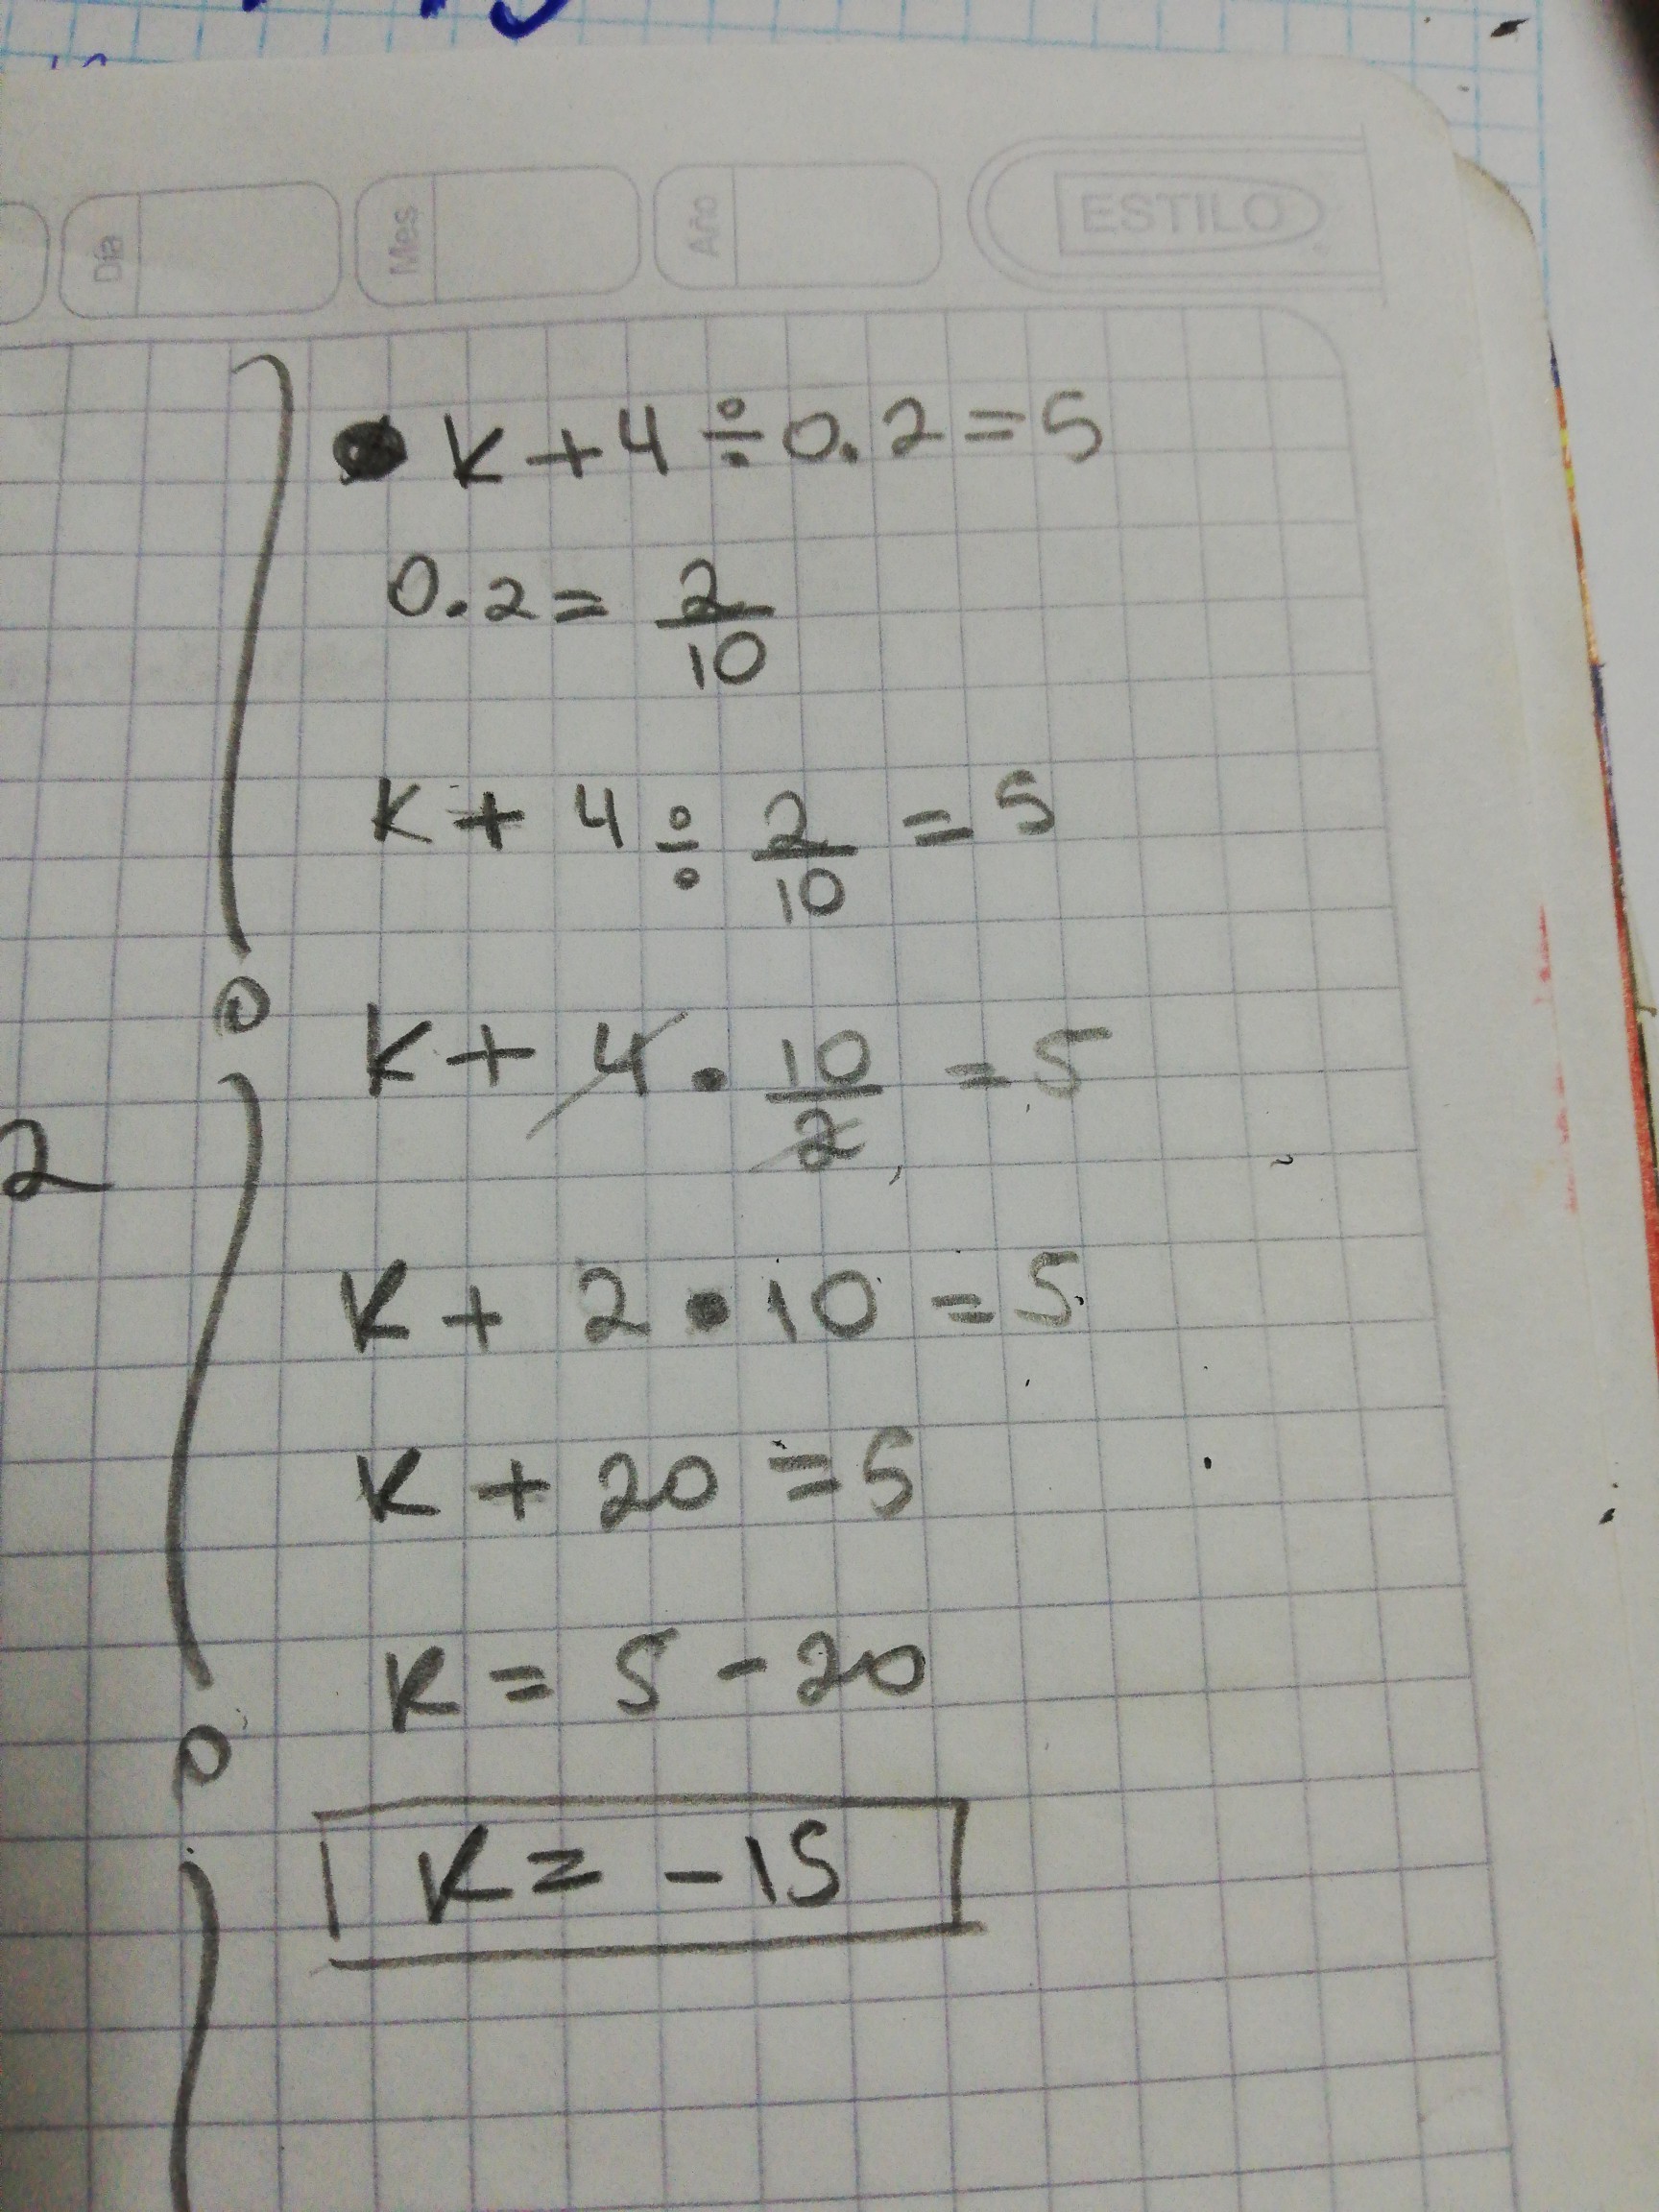 Día Mes Año ESTILO
K + 4 ÷ 0.2 = 5
0.2 = 2/10
K + 4 ÷ 2/10 = 5
K + 4 • 10/2 = 5
2
K + 2 • 10 = 5
K + 20 = 5
K = 5 - 20
K = -15